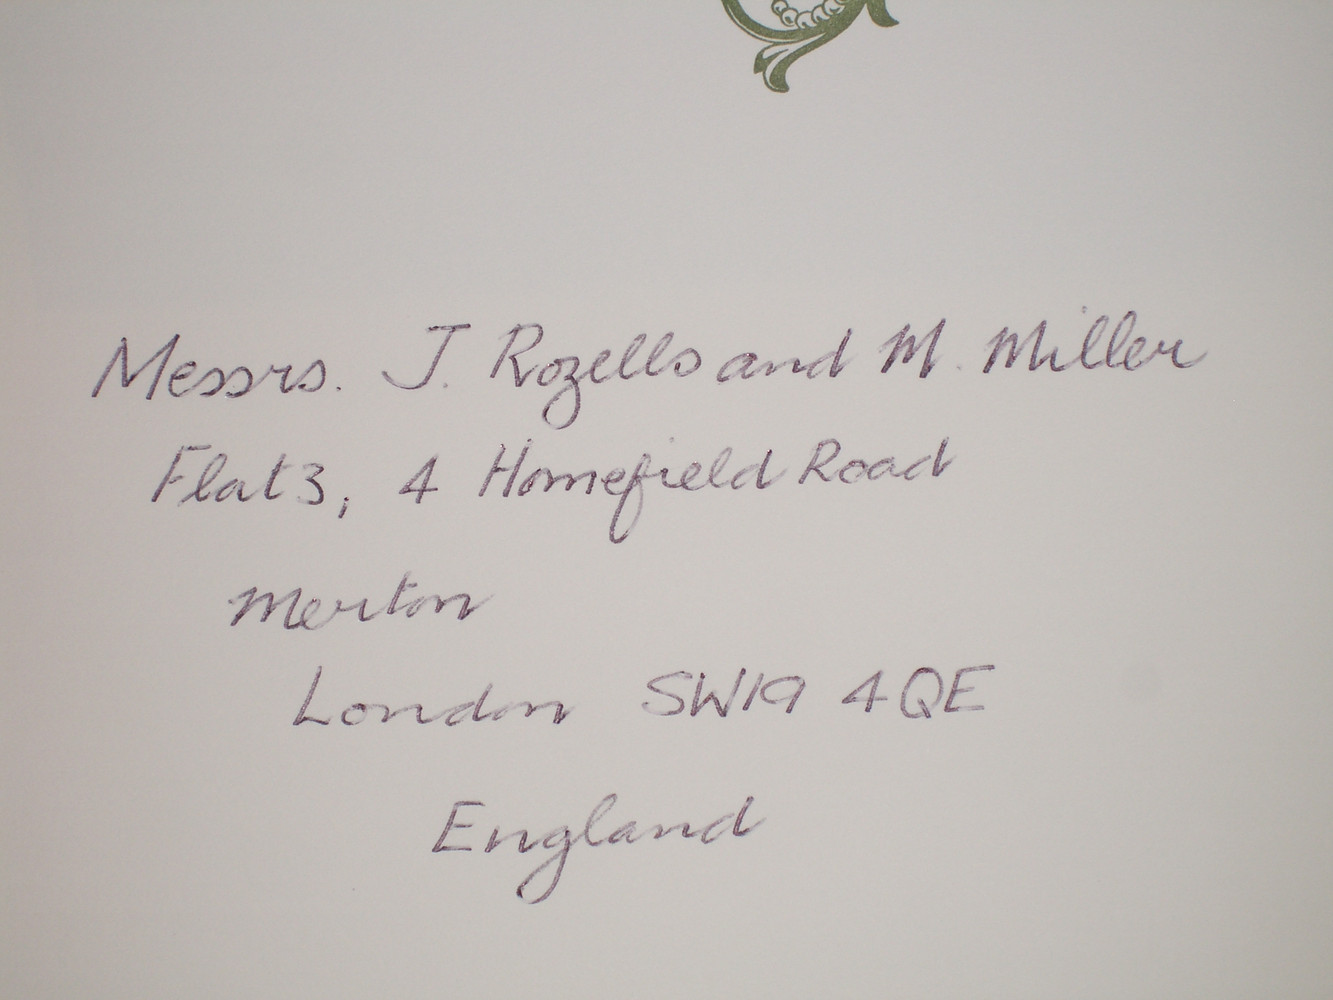 Messrs. J. Rozells and M. Miller
Flat 3, 4 Homefield Road
Merton
London SW19 4QE
England